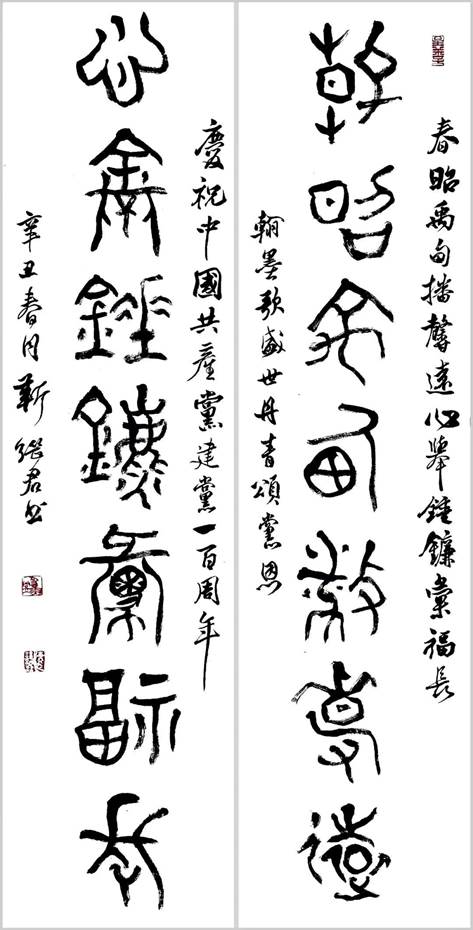 春昭禹甸播馨遠心舉錘鐮彙福長
春昭禹甸播馨遠
翰墨歌盛世丹青頌黨恩
慶祝中國共產黨建黨一百周年
心舉錘鐮彙福長
辛丑春月靳繼君書